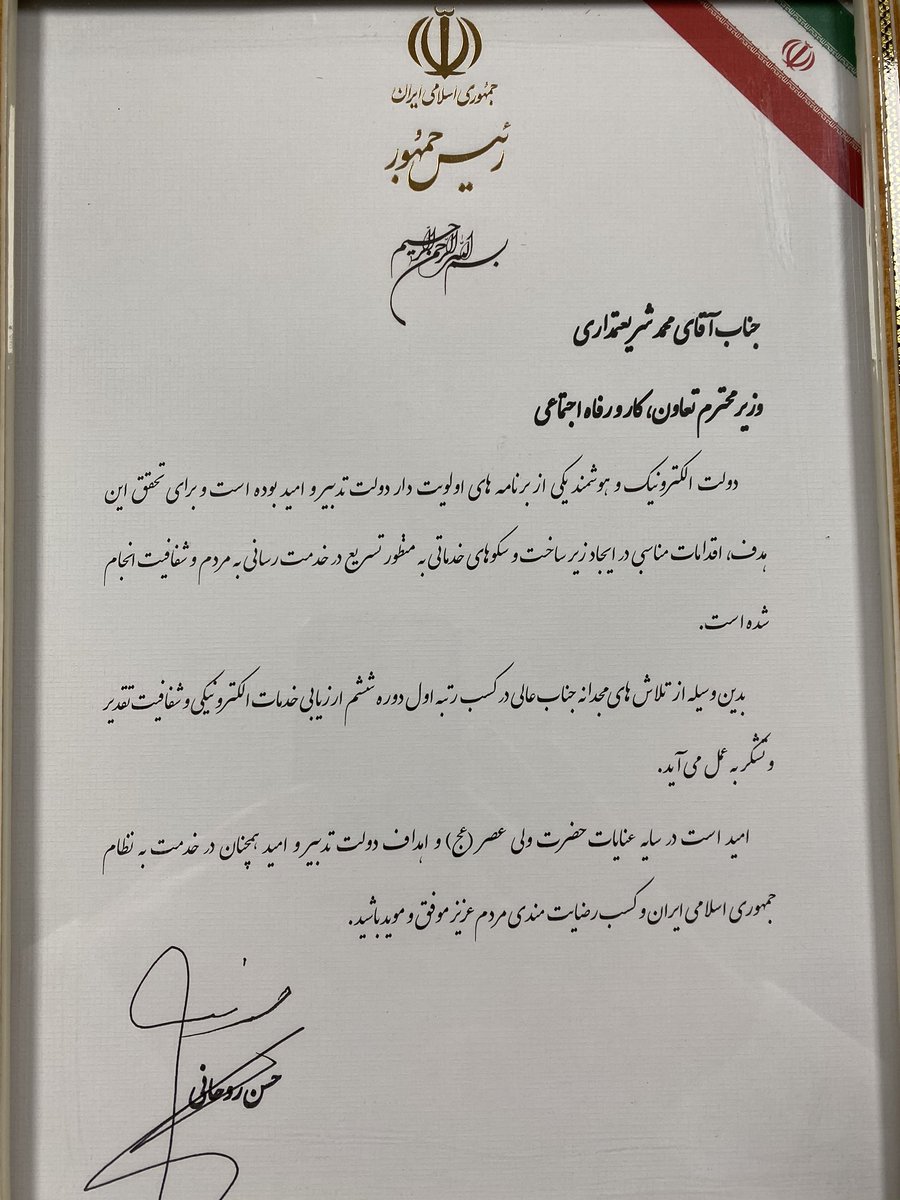 جمهوری اسلامی ایران
رئیس جمهور
بسم الله الرحمن الرحیم
جناب آقای محمد شریعتمداری
وزیر محترم تعاون، کار و رفاه اجتماعی
دولت الکترونیک و هوشمند یکی از برنامه های اولویت دار دولت تدبیر و امید بوده است و برای تحقق این
هدف، اقدامات مناسبی در ایجاد زیرساخت و سکوهای خدماتی به منظور تسریع در خدمت رسانی به مردم و شفافیت انجام
شده است.
بدین وسیله از تلاش های مجدانه جناب عالی در کسب رتبه اول دوره ششم ارزیابی خدمات الکترونیکی و شفافیت تقدیر
و تشکر به عمل می آید.
امید است در سایه عنایات حضرت ولی عصر (عج) و اهداف دولت تدبیر و امید همچنان در خدمت به نظام
جمهوری اسلامی ایران و کسب رضایت مندی مردم عزیز موفق و موید باشید.
حسن روحانی